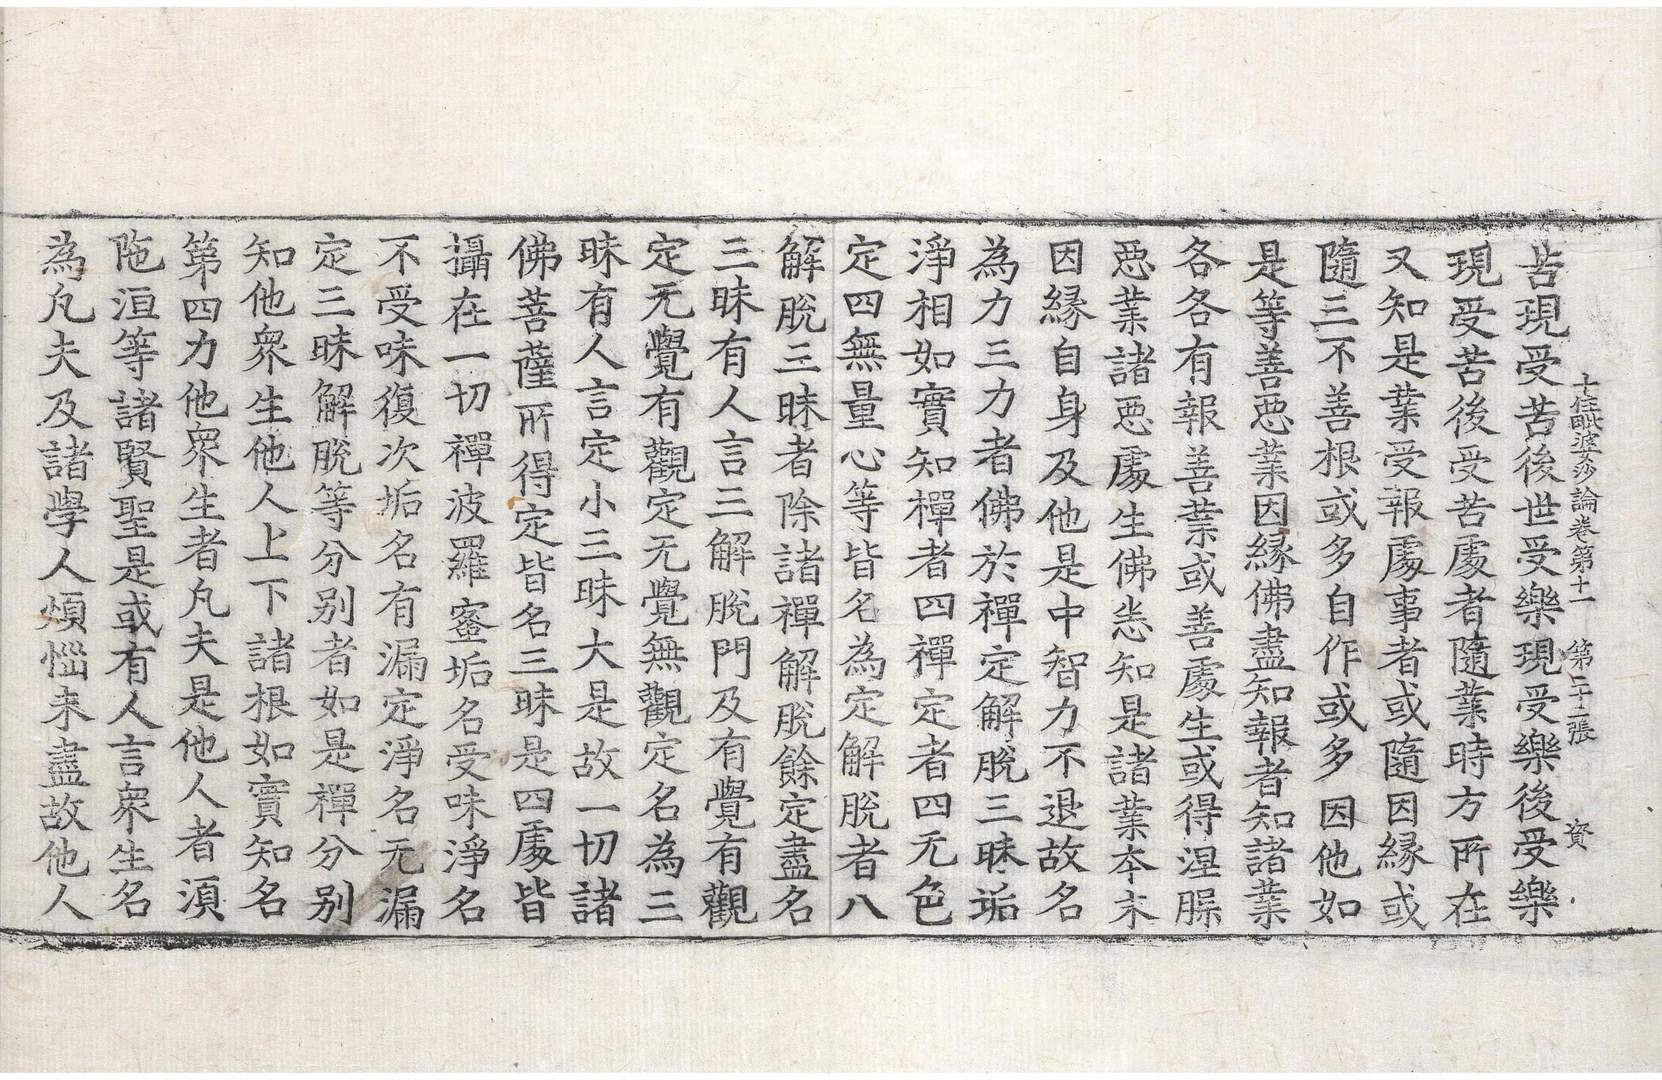 苦現受苦後世受樂現受樂後受樂
十住毗婆沙論卷第十一　第二十二張　資
現受苦後受苦處者隨業時方所在
又知是業受報處事者或隨因緣或
隨三不善根或多自作或多因他如
是等善惡業因緣佛盡知報者知諸業
各各有報善業或善處生或得涅槃
惡業諸惡處生佛悉知是諸業本末
因緣自身及他是中智力不退故名
為力三力者佛於禪定解脫三昧垢
淨相如實知禪者四禪定者四无色
定四無量心等皆名為定解脫者八
解脫三昧者除諸禪解脫餘定盡名
三昧有人言三解脫門及有覺有觀
定无覺有觀定无覺無觀定名為三
昧有人言定小三昧大是故一切諸
佛菩薩所得定皆名三昧是四處皆
攝在一切禪波羅蜜垢名受味淨名
不受味復次垢名有漏定淨名无漏
定三昧解脫等分別者如是禪分別
知他眾生他人上下諸根如實知名
第四力他眾生者凡夫是他人者須
陁洹等諸賢聖是或有人言眾生名
為凡夫及諸學人煩惱未盡故他人